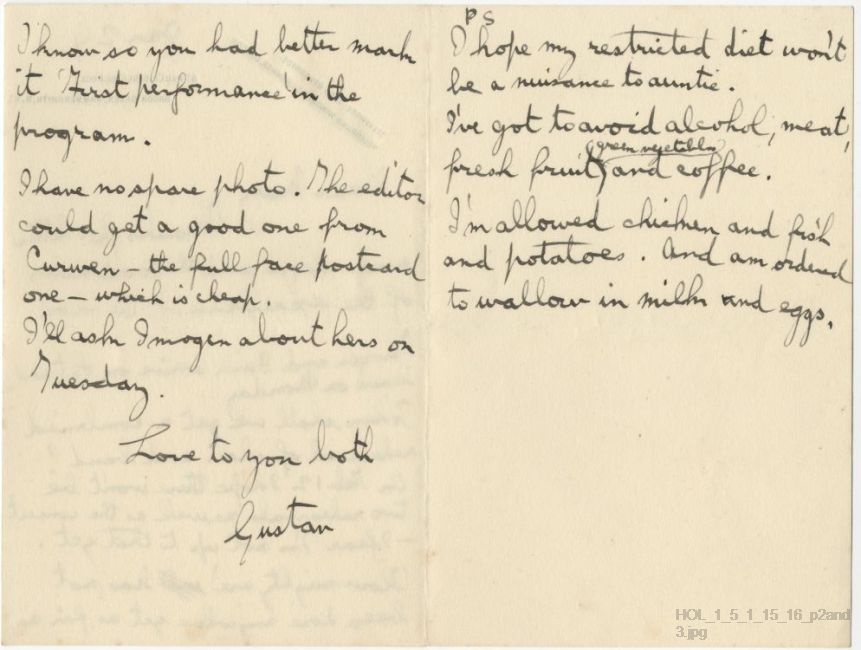 I know so you had better mark
it 'First performance' in the
program.
I have no spare photo. The editor
could get a good one from
Curwen – the full face postcard
one – which is cheap.
I'll ask Imogen about hers on
Tuesday.
Love to you both
Gustav
PS
I hope my restricted diet won't
be a nuisance to auntie.
I've got to avoid alcohol, meat,
green vegetables
fresh fruit, and coffee.
I'm allowed chicken and fish
and potatoes. And am ordered
to wallow in milk and eggs.
HOL_1_5_1_15_16_p2and
3.jpg